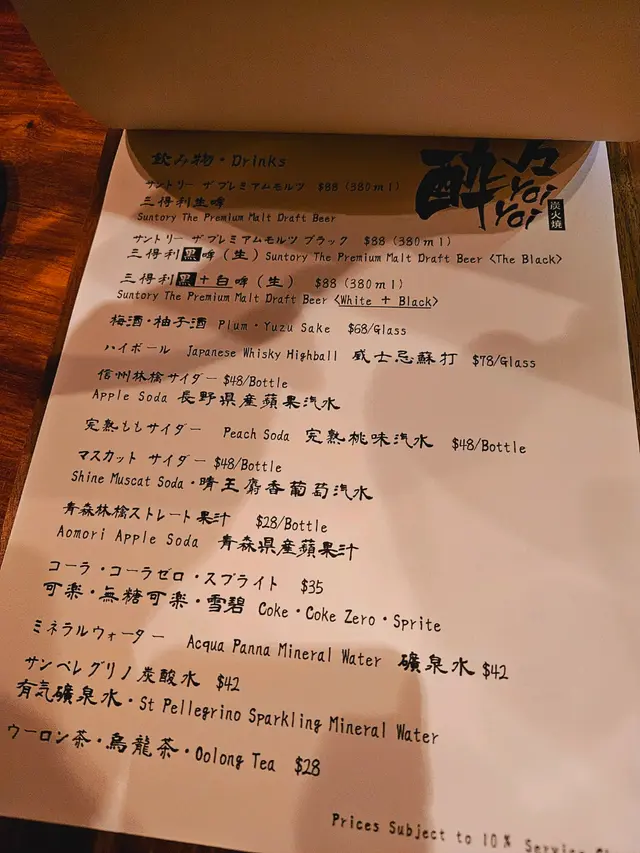 飲み物・Drinks
酔々
Yoi
Yoi
炭火焼
サントリー ザ プレミアムモルツ $88 (380ml)
三得利生啤
Suntory The Premium Malt Draft Beer
サントリー ザ プレミアムモルツ ブラック $88 (380ml)
三得利黒啤（生）Suntory The Premium Malt Draft Beer <The Black>
三得利黒+白啤（生） $88 (380ml)
Suntory The Premium Malt Draft Beer <White + Black>
梅酒・柚子酒 Plum・Yuzu Sake $68/Glass
ハイボール Japanese Whisky Highball 威士忌蘇打 $78/Glass
信州林檎サイダー $48/Bottle
Apple Soda 長野県産蘋果汽水
完熟ももサイダー Peach Soda 完熟桃味汽水 $48/Bottle
マスカット サイダー $48/Bottle
Shine Muscat Soda・晴王麝香葡萄汽水
青森林檎ストレート果汁 $28/Bottle
Aomori Apple Soda 青森県産蘋果汁
コーラ・コーラゼロ・スプライト $35
可楽・無糖可楽・雪碧 Coke・Coke Zero・Sprite
ミネラルウォーター Acqua Panna Mineral Water 礦泉水 $42
サンペレグリノ炭酸水 $42
有気礦泉水・St Pellegrino Sparkling Mineral Water
ウーロン茶・烏龍茶・Oolong Tea $28
Prices Subject to 10%